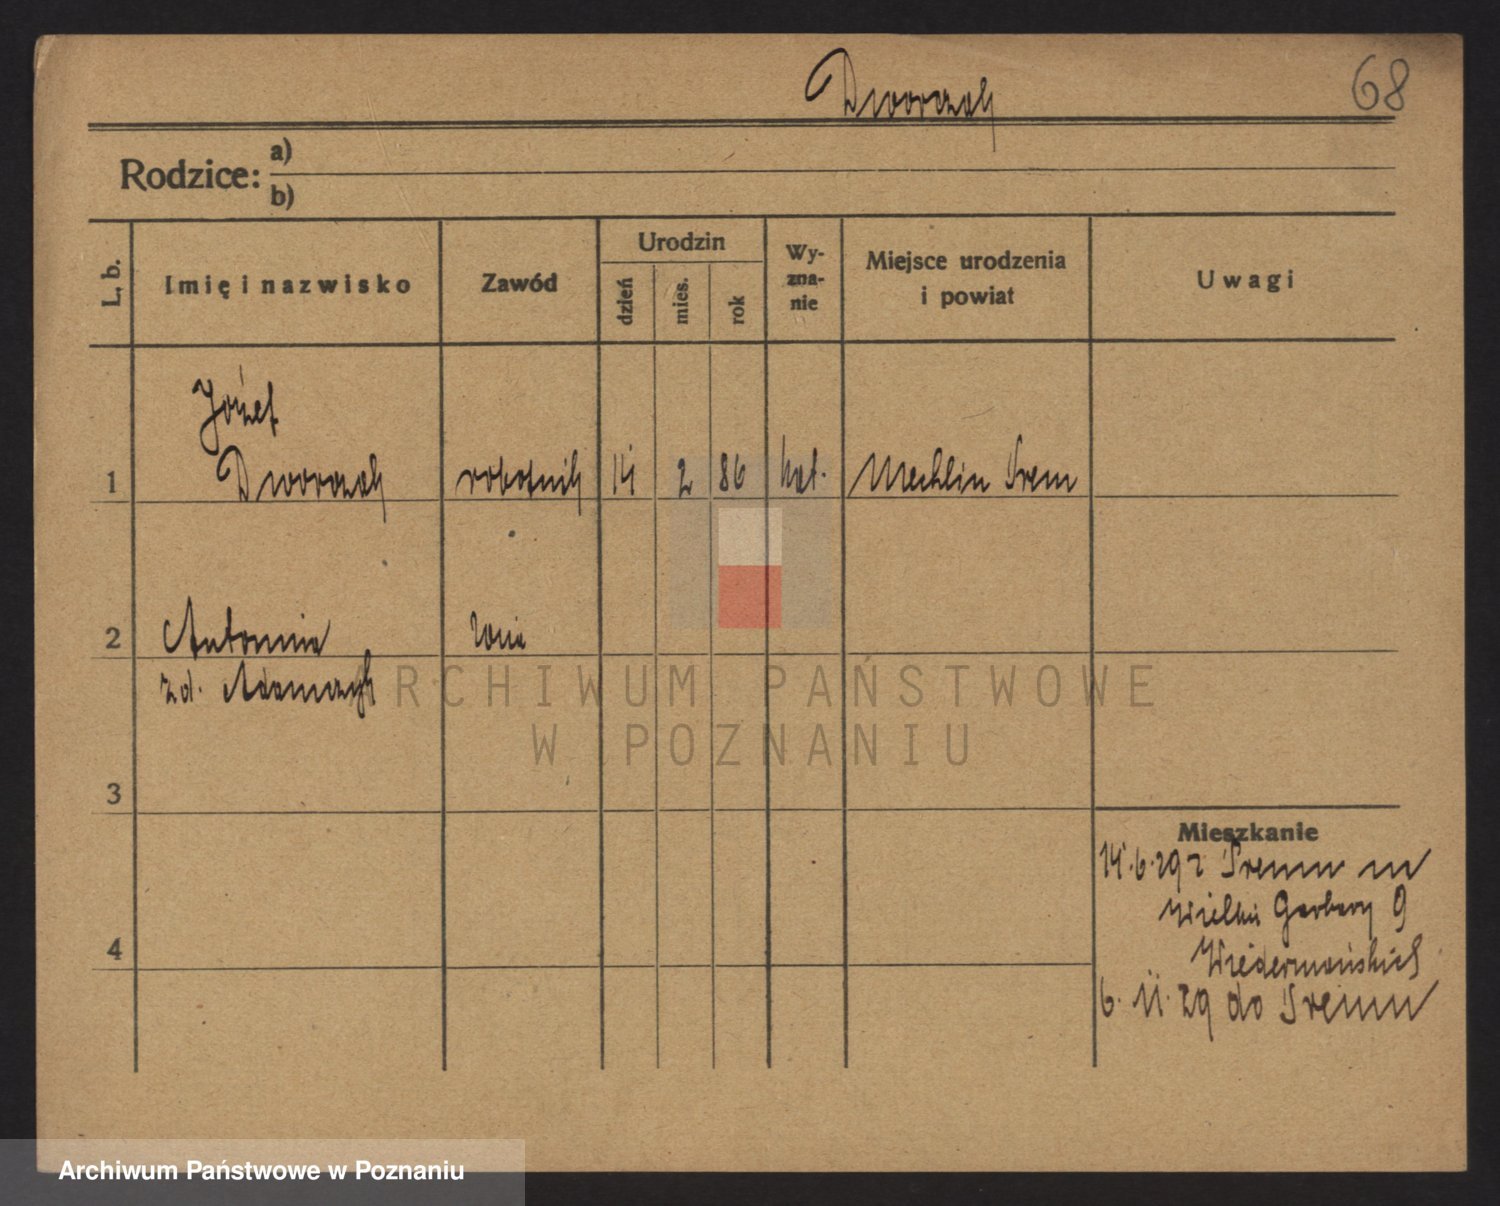 Dworczak
68
Rodzice: a)
b)
L. b.
Imię i nazwisko
Zawód
Urodzin
dzień
mies.
rok
Wy-
zna-
nie
Miejsce urodzenia
i powiat
Uwagi
Józef
1 Dworczak robotnik 14 2 86 kat. Mechlin Śrem
2 Antonina żona
zd. Adamczyk
3
4
Mieszkanie
14.6.29 z Śremu
Wielkie Garbary 9
6. 11. 29 do Śremu
ARCHIWUM PAŃSTWOWE
W POZNANIU
Archiwum Państwowe w Poznaniu